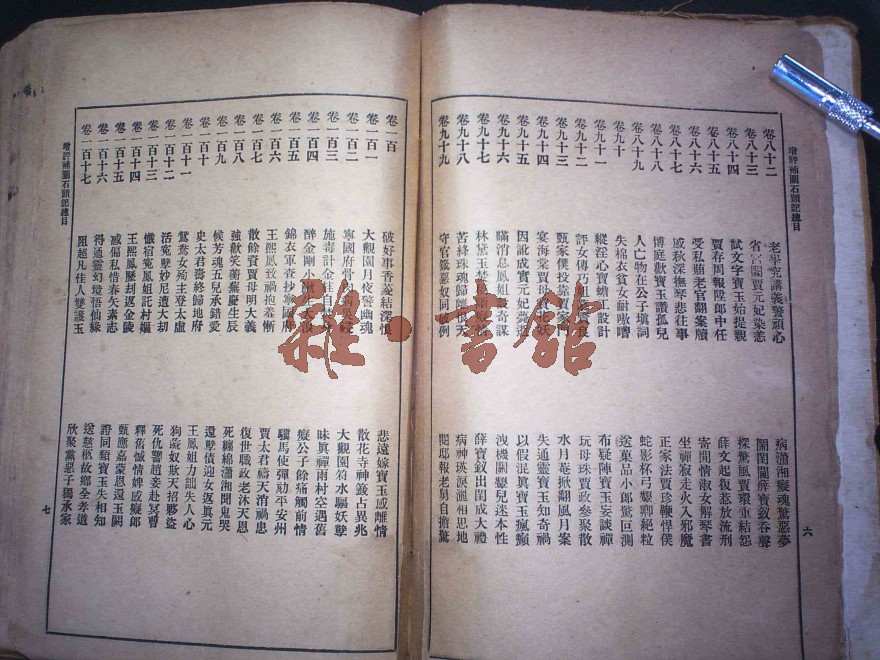 增評補圖石頭記總目
卷八十二 老學究講義警頑心 病瀟湘癡魂驚惡夢
卷八十三 省宮闈賈元妃染恙 鬧閨閫薛寶釵吞聲
卷八十四 試文字寶玉始提親 探驚風賈環重結怨
卷八十五 賈存周報陞郎中任 薛文起復惹放流刑
卷八十六 受私賄老官翻案牘 寄閒情淑女解琴書
卷八十七 感秋深撫琴悲往事 坐禪寂走火入邪魔
卷八十八 博庭歡寶玉讚孤兒 正家法賈珍鞭悍僕
卷八十九 人亡物在公子填詞 蛇影杯弓顰卿絕粒
卷九十 失棉衣貧女耐嗷嘈 送菓品小郎驚叵測
卷九十一 縱淫心寶蟾工設計 布疑陣寶玉妄談禪
卷九十二 評女傳巧姐慕賢良 玩母珠賈政參聚散
卷九十三 甄家僕投靠賈家門 水月菴掀翻風月案
卷九十四 宴海棠賈母賞花妖 失通靈寶玉知奇禍
卷九十五 因訛成實元妃薨逝 以假混真寶玉瘋癲
卷九十六 瞞消息鳳姐設奇謀 洩機關顰兒迷本性
卷九十七 林黛玉焚稿斷癡情 薛寶釵出閨成大禮
卷九十八 苦絳珠魂歸離恨天 病神瑛淚灑相思地
卷九十九 守官箴惡奴同破例 閱邸報老舅自擔驚
六
卷一百 破好事香菱結深恨 悲遠嫁寶玉感離情
卷一百一 大觀園月夜警幽魂 散花寺神籤占異兆
卷一百二 寧國府骨肉病災祲 大觀園符水驅妖孽
卷一百三 施毒計金桂自焚身 昧真禪雨村空遇舊
卷一百四 醉金剛小鰍生大浪 癡公子餘痛觸前情
卷一百五 錦衣軍查抄寧國府 驄馬使彈劾平安州
卷一百六 王熙鳳致禍抱羞慚 賈太君禱天消禍患
卷一百七 散餘資賈母明大義 復世職政老沐天恩
卷一百八 強歡笑蘅蕪慶生辰 死纏綿瀟湘聞鬼哭
卷一百九 候芳魂五兒承錯愛 還孽債迎女返真元
卷一百十 史太君壽終歸地府 王鳳姐力詘失人心
卷一百十一 鴛鴦女殉主登太虛 狗彘奴欺天招夥盜
卷一百十二 活冤孽妙尼遭大劫 死仇讐趙妾赴冥曹
卷一百十三 懺宿冤鳳姐託村嫗 釋舊憾情婢感癡郎
卷一百十四 王熙鳳歷刦返金陵 甄應嘉蒙恩還玉闕
卷一百十五 惑偏私惜春矢素志 證同類寶玉失相知
卷一百十六 得通靈幻境悟仙緣 送慈柩故鄉全孝道
卷一百十七 阻超凡佳人雙護玉 欣聚黨惡子獨承家
增評補圖石頭記總目
七
雜·書館